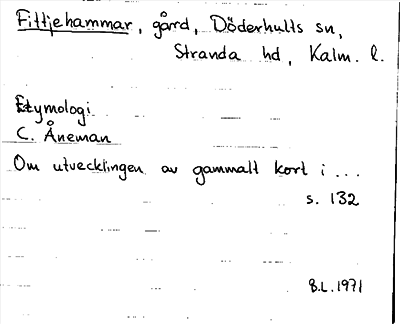 Fittjehammar, gård, Döderhults sn,
Stranda hd, Kalm. l.
Etymologi
C. Åneman
Om utvecklingen av gammalt kort i ...
s. 132
B.L. 1971